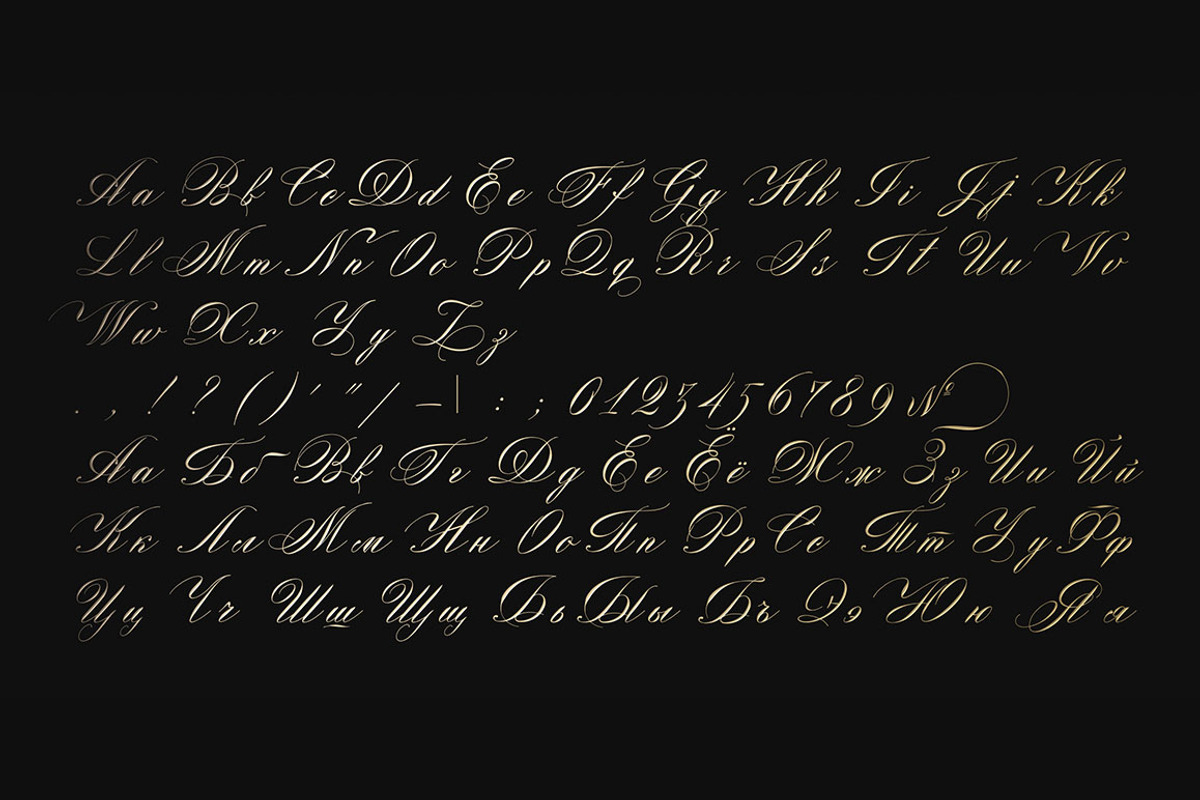 Aa Bb Cc Dd Ee Ff Gg Hh Ii Jj Kk
Ll Mm Nn Oo Pp Qq Rr Ss Tt Uu Vv
Ww Xx Yy Zz
. , ! ? ( ) ' " / – | : ; 0123456789 №
Аа Бб Вв Гг Дд Ее Ёё Жж Зз Ии Йй
Кк Лл Мм Нн Оо Пп Рр Сс Тт Уу Фф
Цц Чч Шш Щщ Ьь Ыы Ъъ Ээ Юю Яя